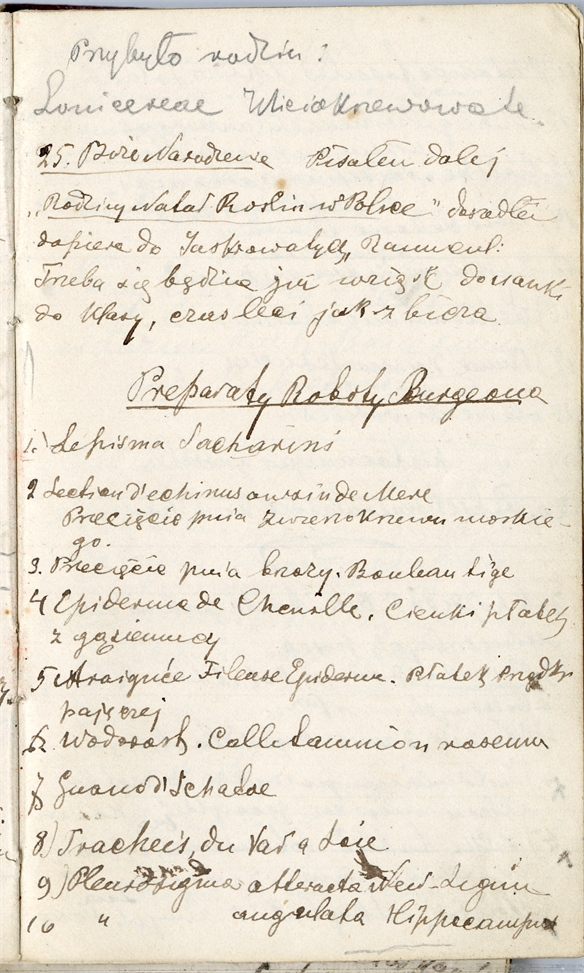 Przybyło rodzin:
Lonicereae Wiciokrzewowate.
25. Boże Narodzenie Pisałem dalej
"Rodziny Natal Roślin w Polsce" doszedłem
dopiero do Jaskrowatych, Ranuncul:
Trzeba się będzie już wziąść do
do klasy, czas leci jak z bicza
Preparaty Roboty Bourgeona
1. Lepisma Sacharini
2 Section d'echinus oursin de Mere
Przecięcie pnia zwierzokrzewu morskie-
go.
3. Przecięcie pnia brzozy. Bouleau tige
4 Epiderme de Chenille. Cienki płatek
z gąsiennicy
5 Araignée Fileuse Epiderm. Płatek prządki
pajęczej
6 Wodorost. Callitamnion roseum
7 Guano d'Ichaboe
8) Trachées du Var a Soie
9) Pleurosigma attenata
10 " angulata Hippocampus